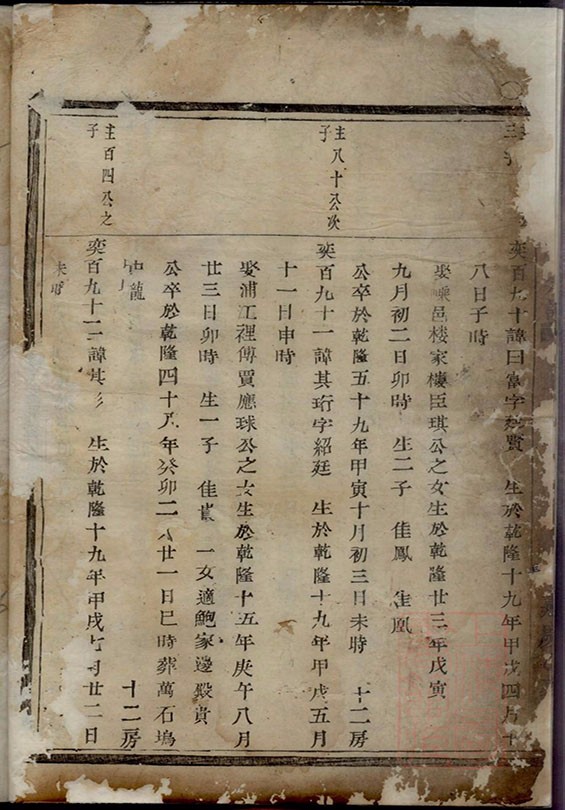 奕百九十諱曰富字　賢　生於乾隆十九年甲戌四月十
八日子時
娶　邑楼家樓臣琪公之女生於乾隆廿三年戊寅
九月初二日卯時　生二子　佳鳳　佳凰
公卒於乾隆五十九年甲寅十月初三日未時　十二房
主八十公次
子
奕百九十一諱其珩字紹廷　生於乾隆十九年甲戌五月
十一日申時
娶浦江裡傅賈應球公之女生於乾隆十五年庚午八月
廿三日卯時　生一子　佳　一女適鮑家邊殿貴
公卒於乾隆四十八年癸卯二月廿一日巳時葬萬石塢
龍　十二房
主百四公之
子
奕百九十二諱其　生於乾隆十九年甲戌七月廿二日
未時